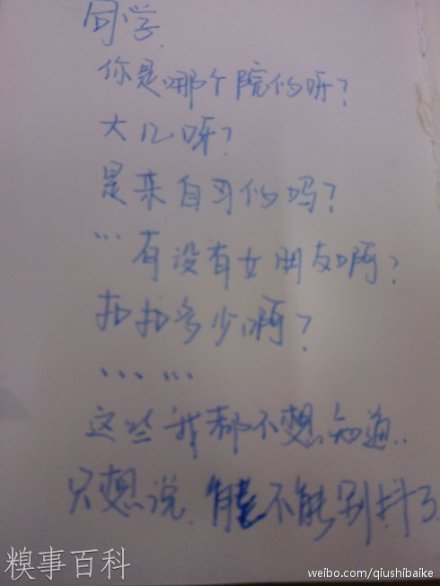 同学,
你是哪个院的呀?
大几呀?
是来自习的吗?
…有没有女朋友啊?
扣扣多少啊?
……
这些我都不想知道..
只想说,能不能别抖了
糗事百科
weibo.com/qiushibaike